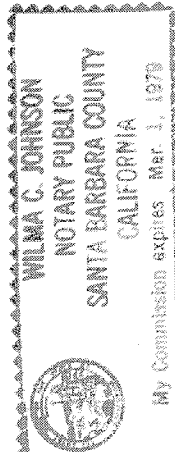 WILMA C. JOHNSON
NOTARY PUBLIC
SANTA BARBARA COUNTY
CALIFORNIA
My Commission expires Mar. 1, 1979